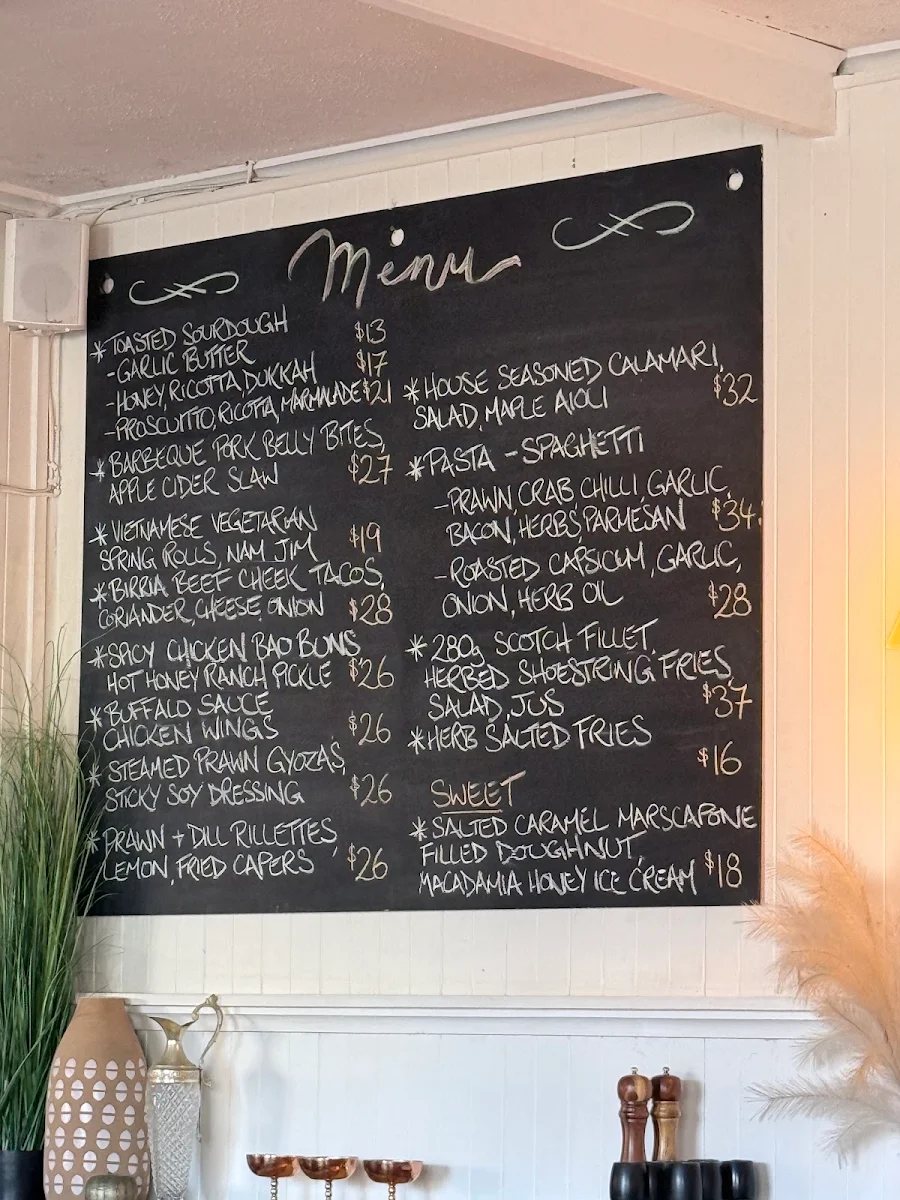 Menu
*TOASTED SOURDOUGH
-GARLIC BUTTER $13
-HONEY, RICOTTA, DUKKAH $17
-PROSCUITTO, RICOTTA, MARMALADE $21
*BARBEQUE PORK BELLY BITES,
APPLE CIDER SLAW $27
*VIETNAMESE VEGETARIAN
SPRING ROLLS, NAM JIM $19
*BIRRIA BEEF CHEEK TACOS,
CORIANDER, CHEESE, ONION $28
*SPICY CHICKEN BAO BUNS
HOT HONEY RANCH PICKLE $26
*BUFFALO SAUCE
CHICKEN WINGS $26
*STEAMED PRAWN GYOZAS,
STICKY SOY DRESSING $26
*PRAWN + DILL RILLETTES,
LEMON, FRIED CAPERS $26
*HOUSE SEASONED CALAMARI,
SALAD, MAPLE AIOLI $32
*PASTA - SPAGHETTI
-PRAWN, CRAB CHILLI, GARLIC,
BACON, HERBS, PARMESAN $34
-ROASTED CAPSICUM, GARLIC,
ONION, HERB OIL $28
*280g SCOTCH FILLET,
HERBED SHOESTRING FRIES,
SALAD, JUS $37
*HERB SALTED FRIES
$16
SWEET
*SALTED CARAMEL MARSCAPONE
FILLED DOUGHNUT,
MACADAMIA HONEY ICE CREAM $18